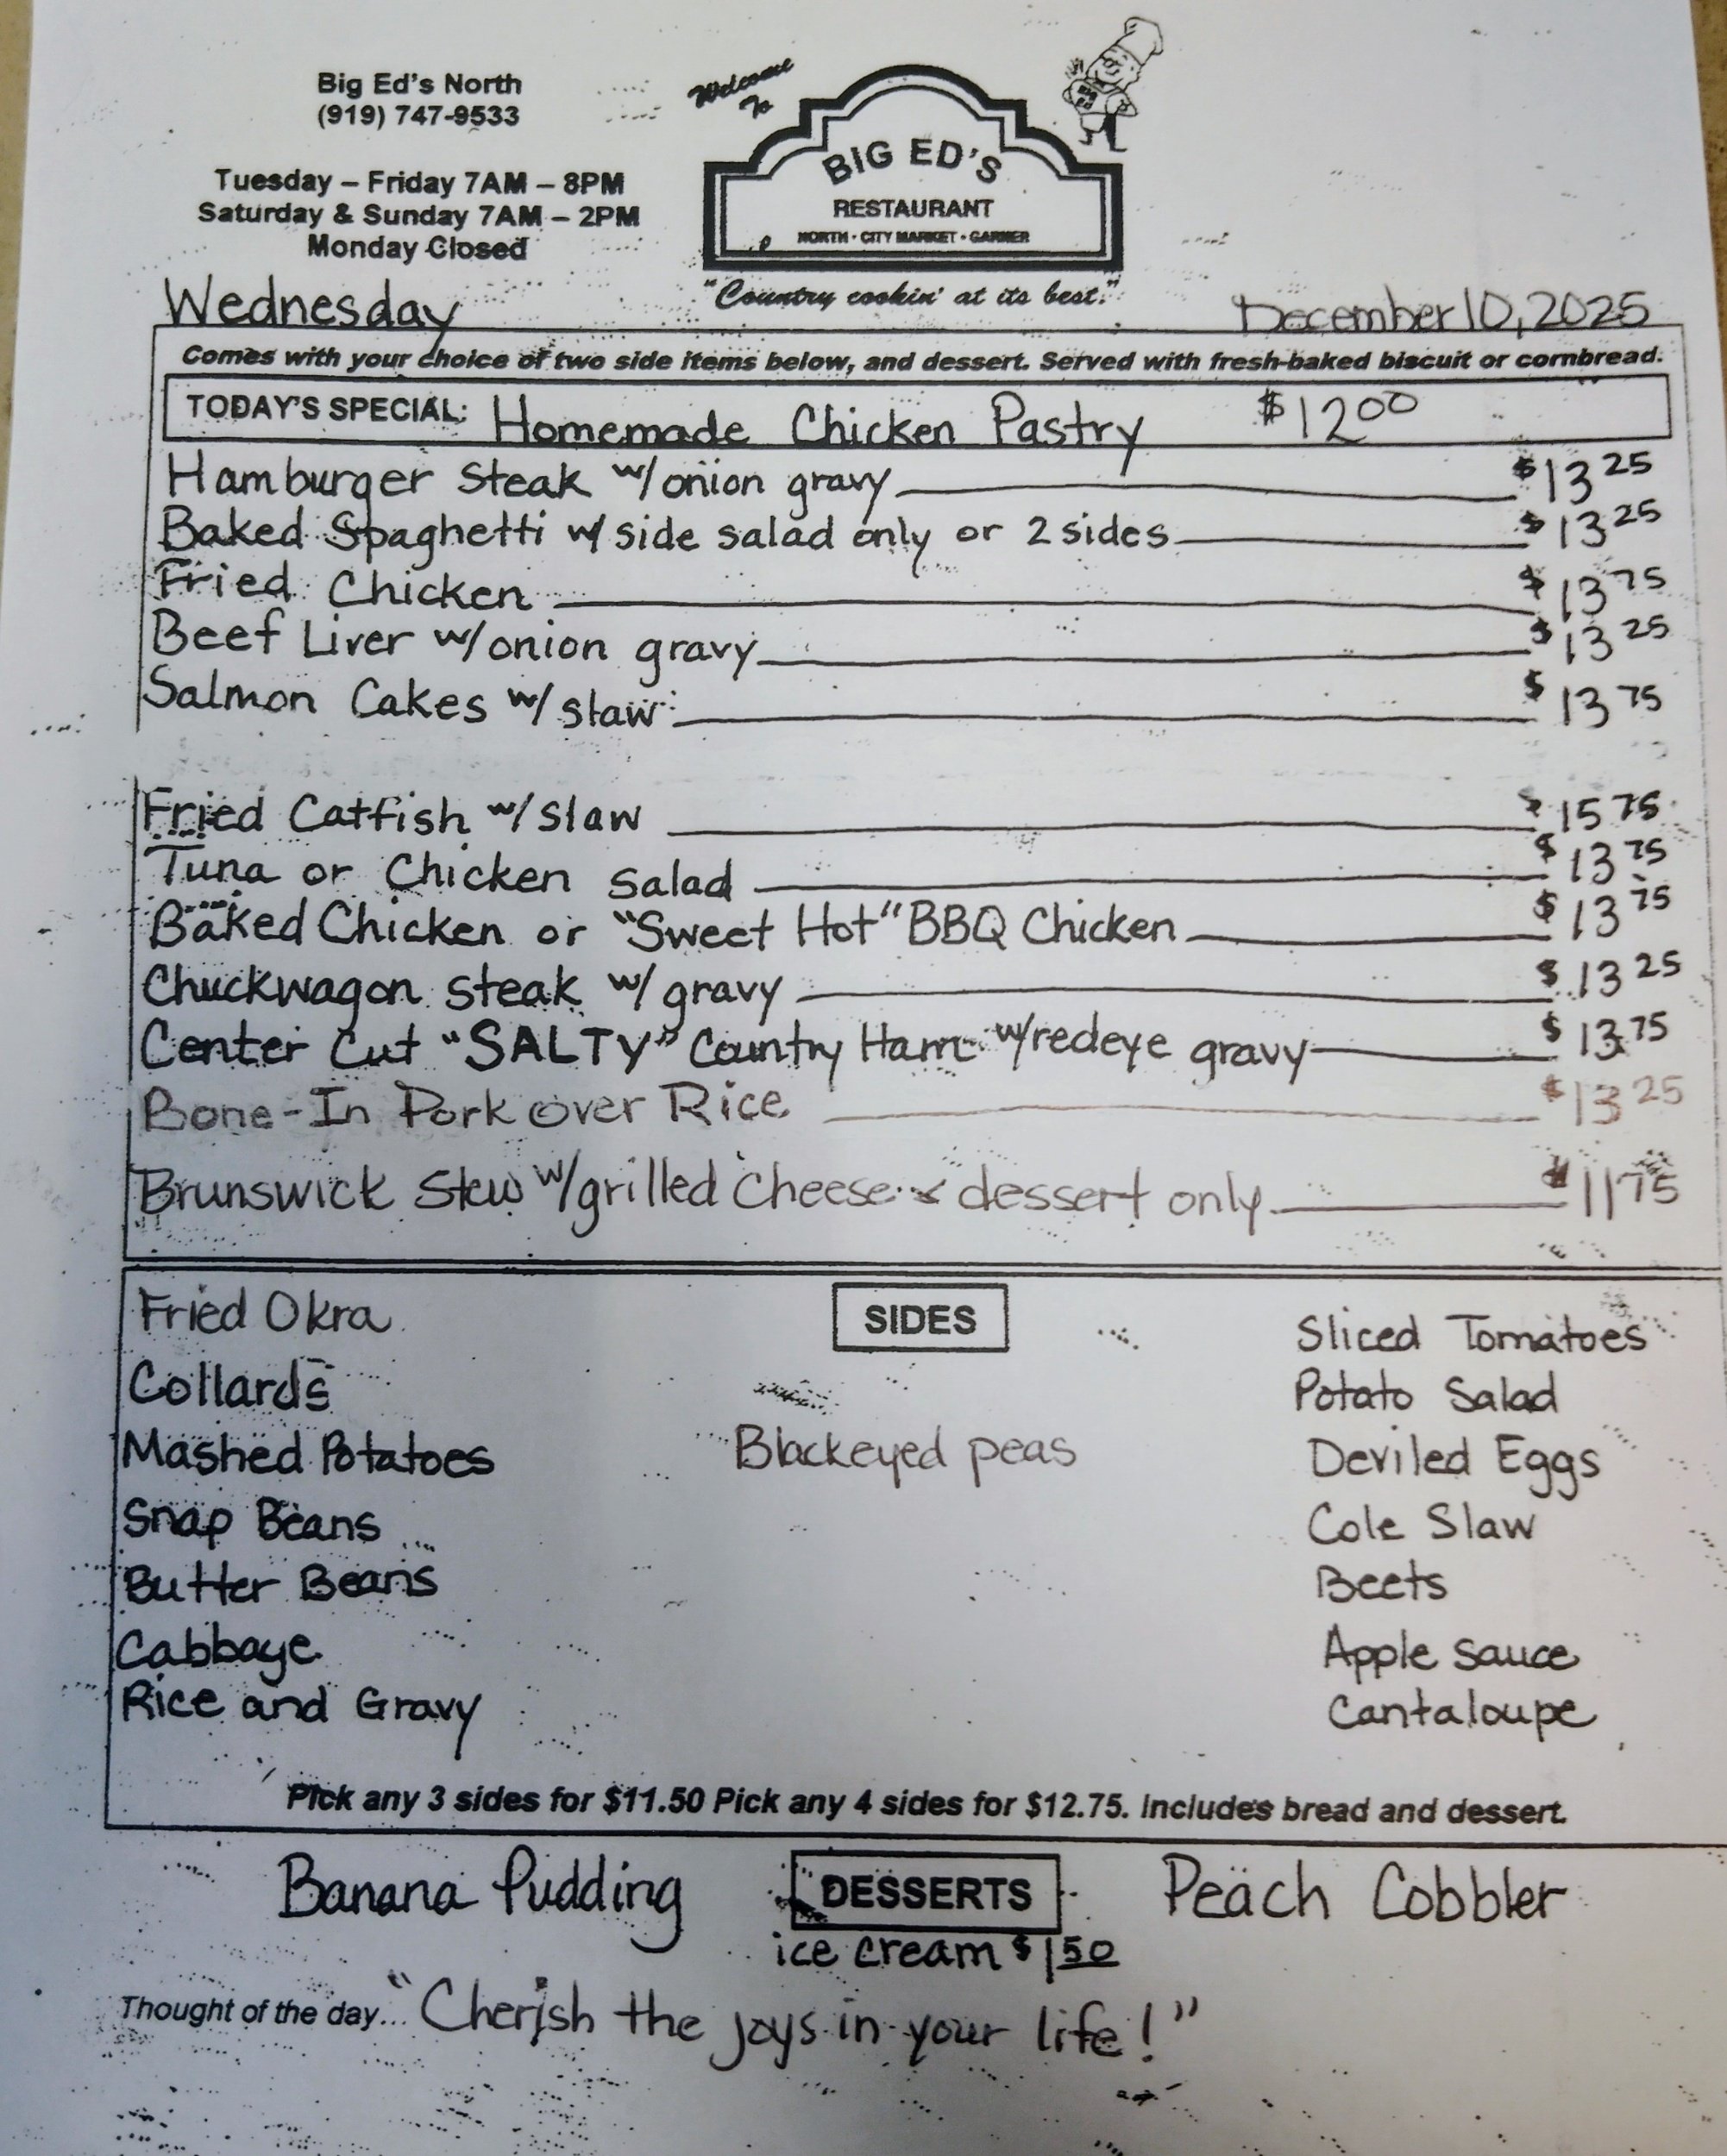 Big Ed's North
(919) 747-9533
Tuesday – Friday 7AM – 8PM
Saturday & Sunday 7AM – 2PM
Monday Closed
Welcome
To
BIG ED'S
RESTAURANT
NORTH · CITY MARKET · GARNER
"Country cookin' at its best."
Wednesday
December 10, 2025
Comes with your choice of two side items below, and dessert. Served with fresh-baked biscuit or cornbread.
TODAY'S SPECIAL: Homemade Chicken Pastry $12 00
Hamburger Steak w/onion gravy $13 25
Baked Spaghetti w/ side salad only or 2 sides $13 25
Fried Chicken $13 75
Beef Liver w/onion gravy $13 25
Salmon Cakes w/slaw $13 75
Fried Catfish w/slaw $15 75
Tuna or Chicken salad $13 75
Baked Chicken or "Sweet Hot" BBQ Chicken $13 75
Chuckwagon steak w/ gravy $13 25
Center Cut "SALTY" Country Ham w/redeye gravy $13.75
Bone-In Pork over Rice $13 25
Brunswick Stew w/grilled Cheese & dessert only $11 75
SIDES
Fried Okra
Collards
Mashed Potatoes
Snap Beans
Butter Beans
Cabbage
Rice and Gravy
Blackeyed peas
Sliced Tomatoes
Potato Salad
Deviled Eggs
Cole Slaw
Beets
Apple Sauce
Cantaloupe
Pick any 3 sides for $11.50 Pick any 4 sides for $12.75. Includes bread and dessert.
Banana Pudding
DESSERTS
Peach Cobbler
ice cream $1 50
Thought of the day... "Cherish the joys in your life!"